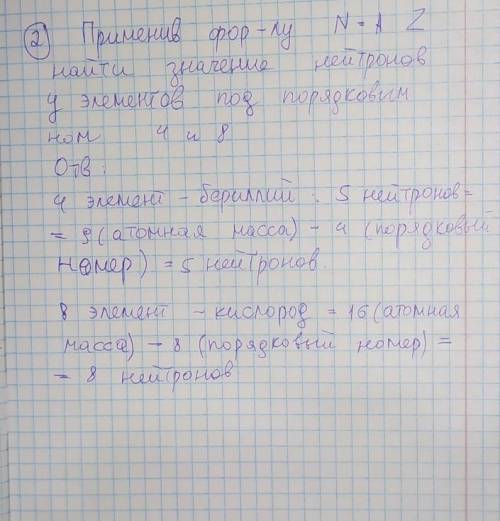 2 Применив фор-лу N = A Z
найти значение нейтронов
у элементов под порядковым
ном 4 и 8
Отв:
4 элемент - бериллий : 5 нейтронов =
= 9 (атомная масса) - 4 (порядковый
номер) = 5 нейтронов.
8 элемент - кислород = 16 (атомная
масса) - 8 (порядковый номер) =
= 8 нейтронов